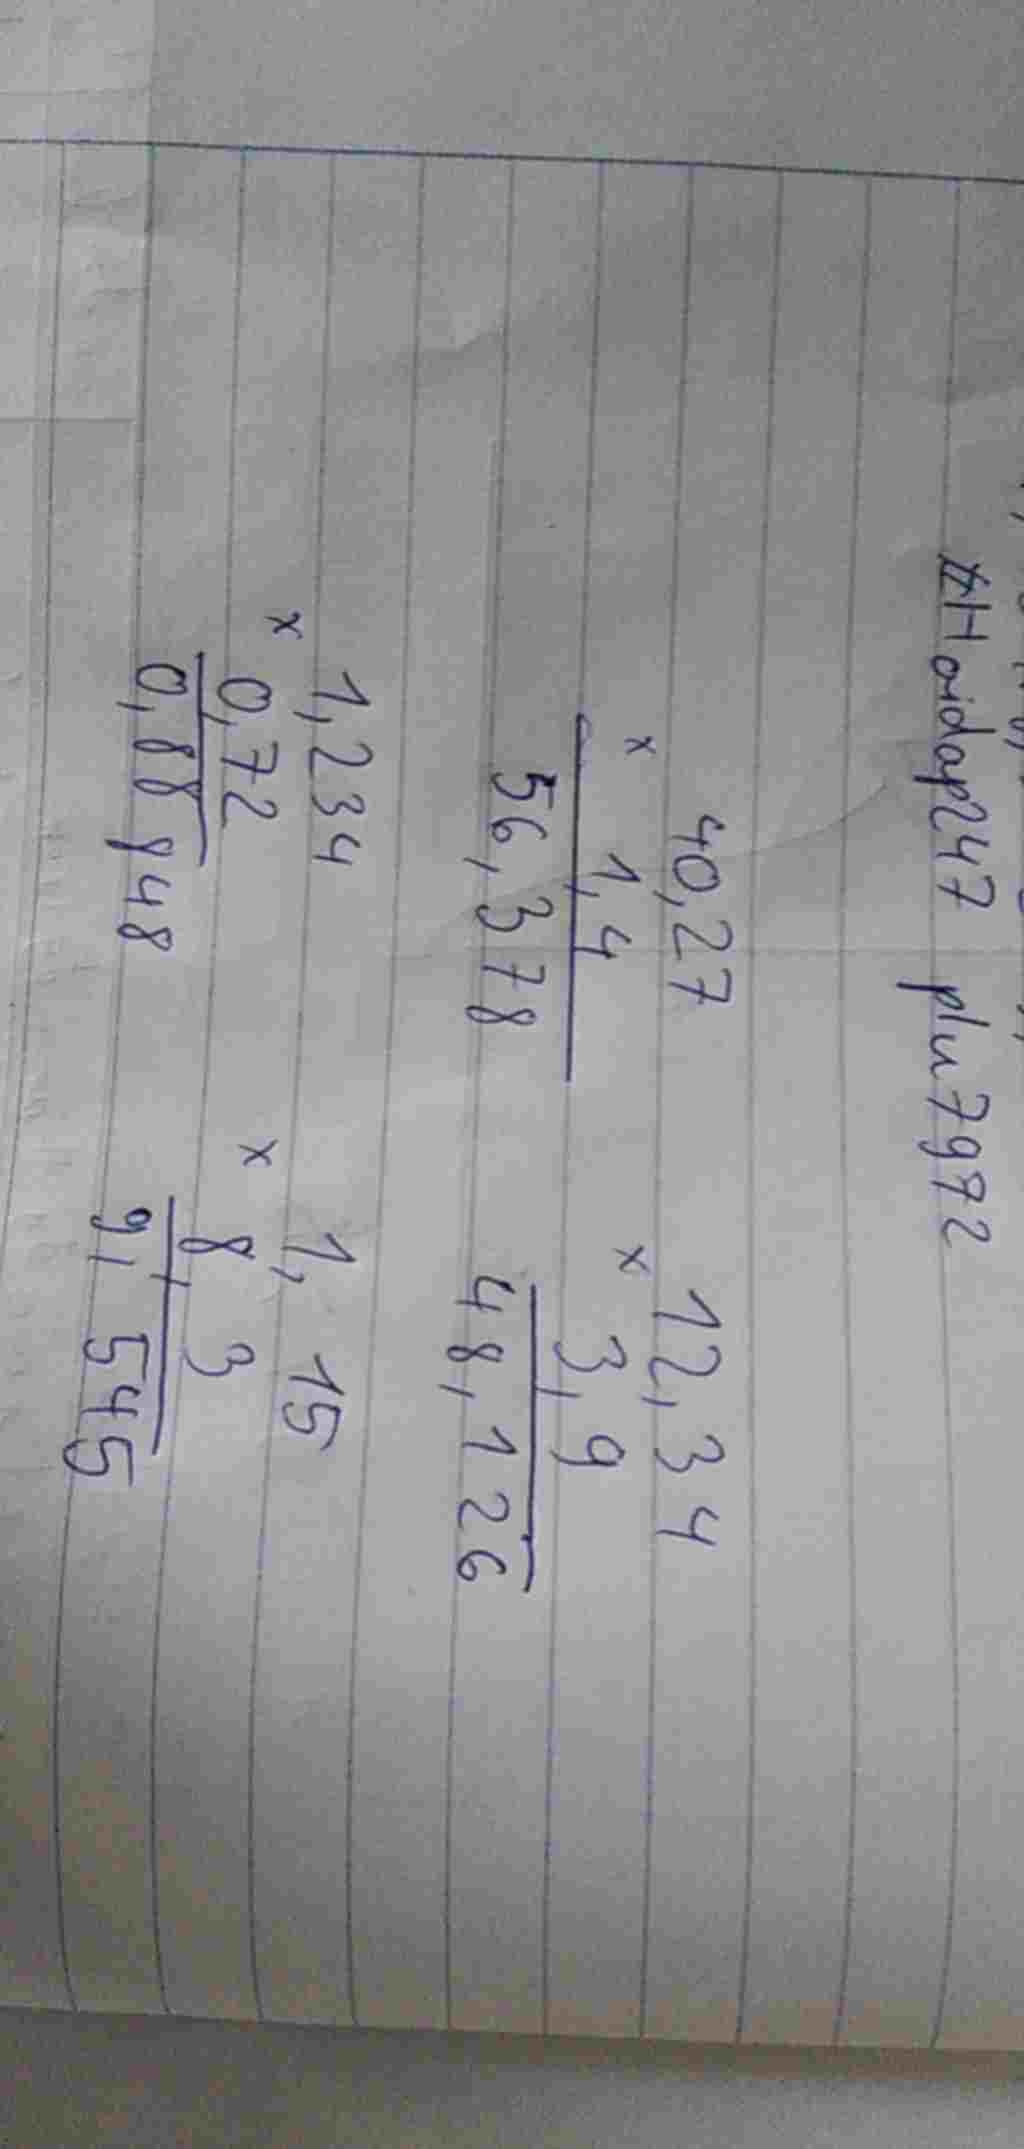 #Hoidap247 plu7972
40,27
x 1,4
56,378
12,34
x 3,9
48,126
1,234
x 0,72
0,88848
1,15
x 8,3
9,545